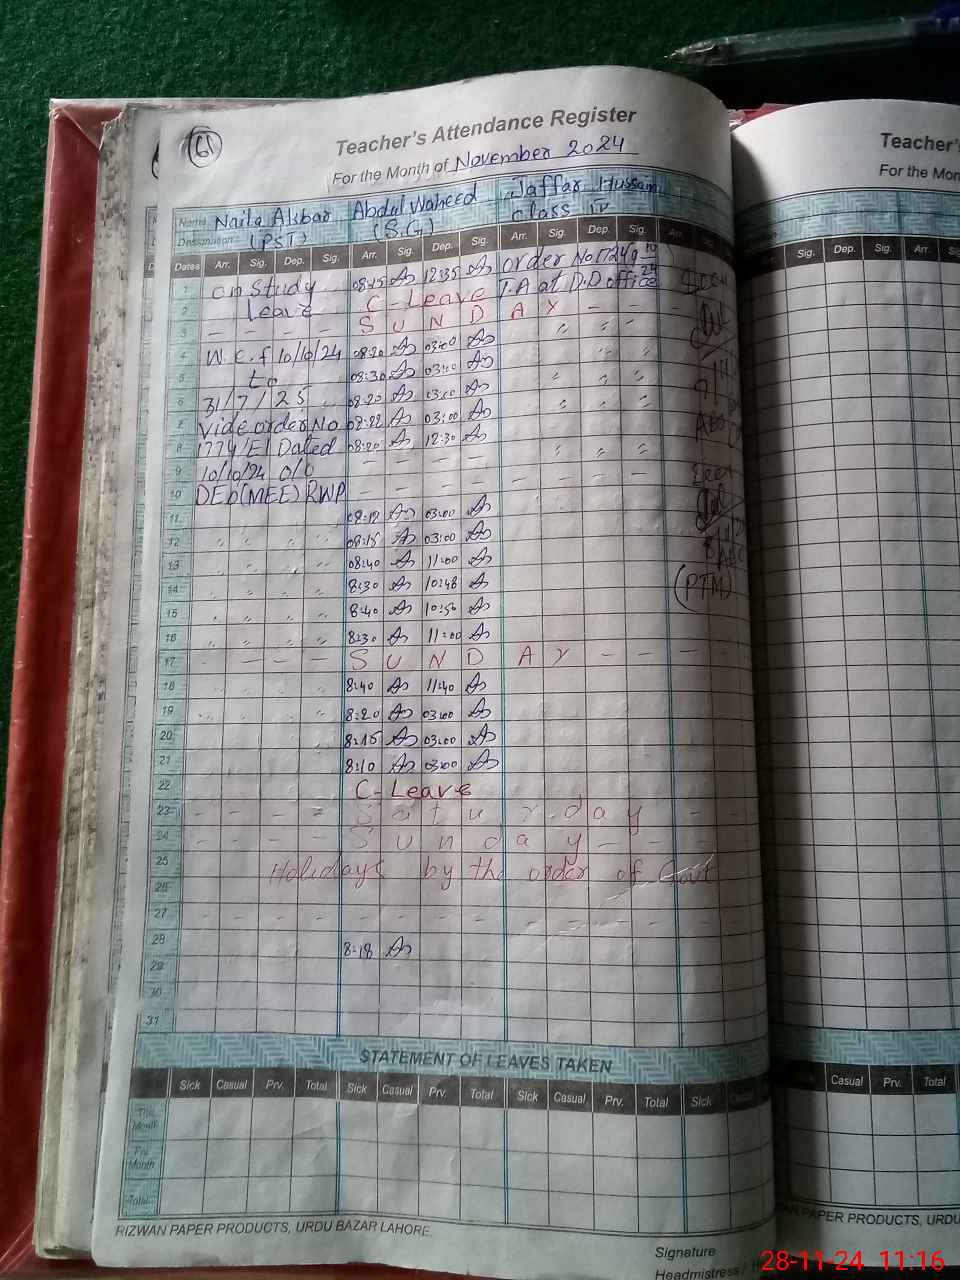 61
Teacher's Attendance Register
For the Month of November 2024
Name Naila Akbar Abdul Waheed Jaffar Hussain
Designation (PST) (S.G) Class IV
Dates Arr. Sig. Dep. Sig. Arr. Sig. Dep. Sig. Arr. Sig. Dep. Sig. Arr. Sig.
1 on Study 08:15 12:35 order No 1724
2 Leave C-Leave T.A at D.D office
3 - - - - S U N D A Y - - -
4 W.e.f 10/10/24 08:20 03:00 " " "
5 to 08:30 03:00 " " "
6 31/7/25 08:20 03:00 " " "
7 Vide order No 08:22 03:00 " " "
8 1774/E1 Dated 08:20 12:30 " " "
9 10/10/24 O/O - - - -
10 DEO(MEE) RWP - - - -
11 " " " " 08:18 03:00
12 " " " " 08:15 03:00
13 " " " " 08:40 11:00
14 " " " " 8:30 10:48 (PTM)
15 " " " " 8:40 10:50
16 " " " " 8:30 11:00
17 - - - - S U N D A Y - - - -
18 " " " " 8:40 11:40
19 " " " " 8:20 03:00
20 8:15 03:00
21 8:10 03:00
22 C-Leave
23 - - - = S a t u r d a y - -
24 - - - - S u n d a y - - -
25 Holidays by the order of Govt
26
27 - - - - - - - - - - - - - -
28 8:18
29
30
31
STATEMENT OF LEAVES TAKEN
Sick Casual Prv. Total Sick Casual Prv. Total Sick Casual Prv. Total Sick Casual
This Month
For Month
Total
RIZWAN PAPER PRODUCTS, URDU BAZAR LAHORE.
Signature
Headmistress /
Teacher's
For the Mon
Sig. Dep. Sig. Arr.
Casual Prv. Total
PAPER PRODUCTS, URDU
28-11-24 11:16